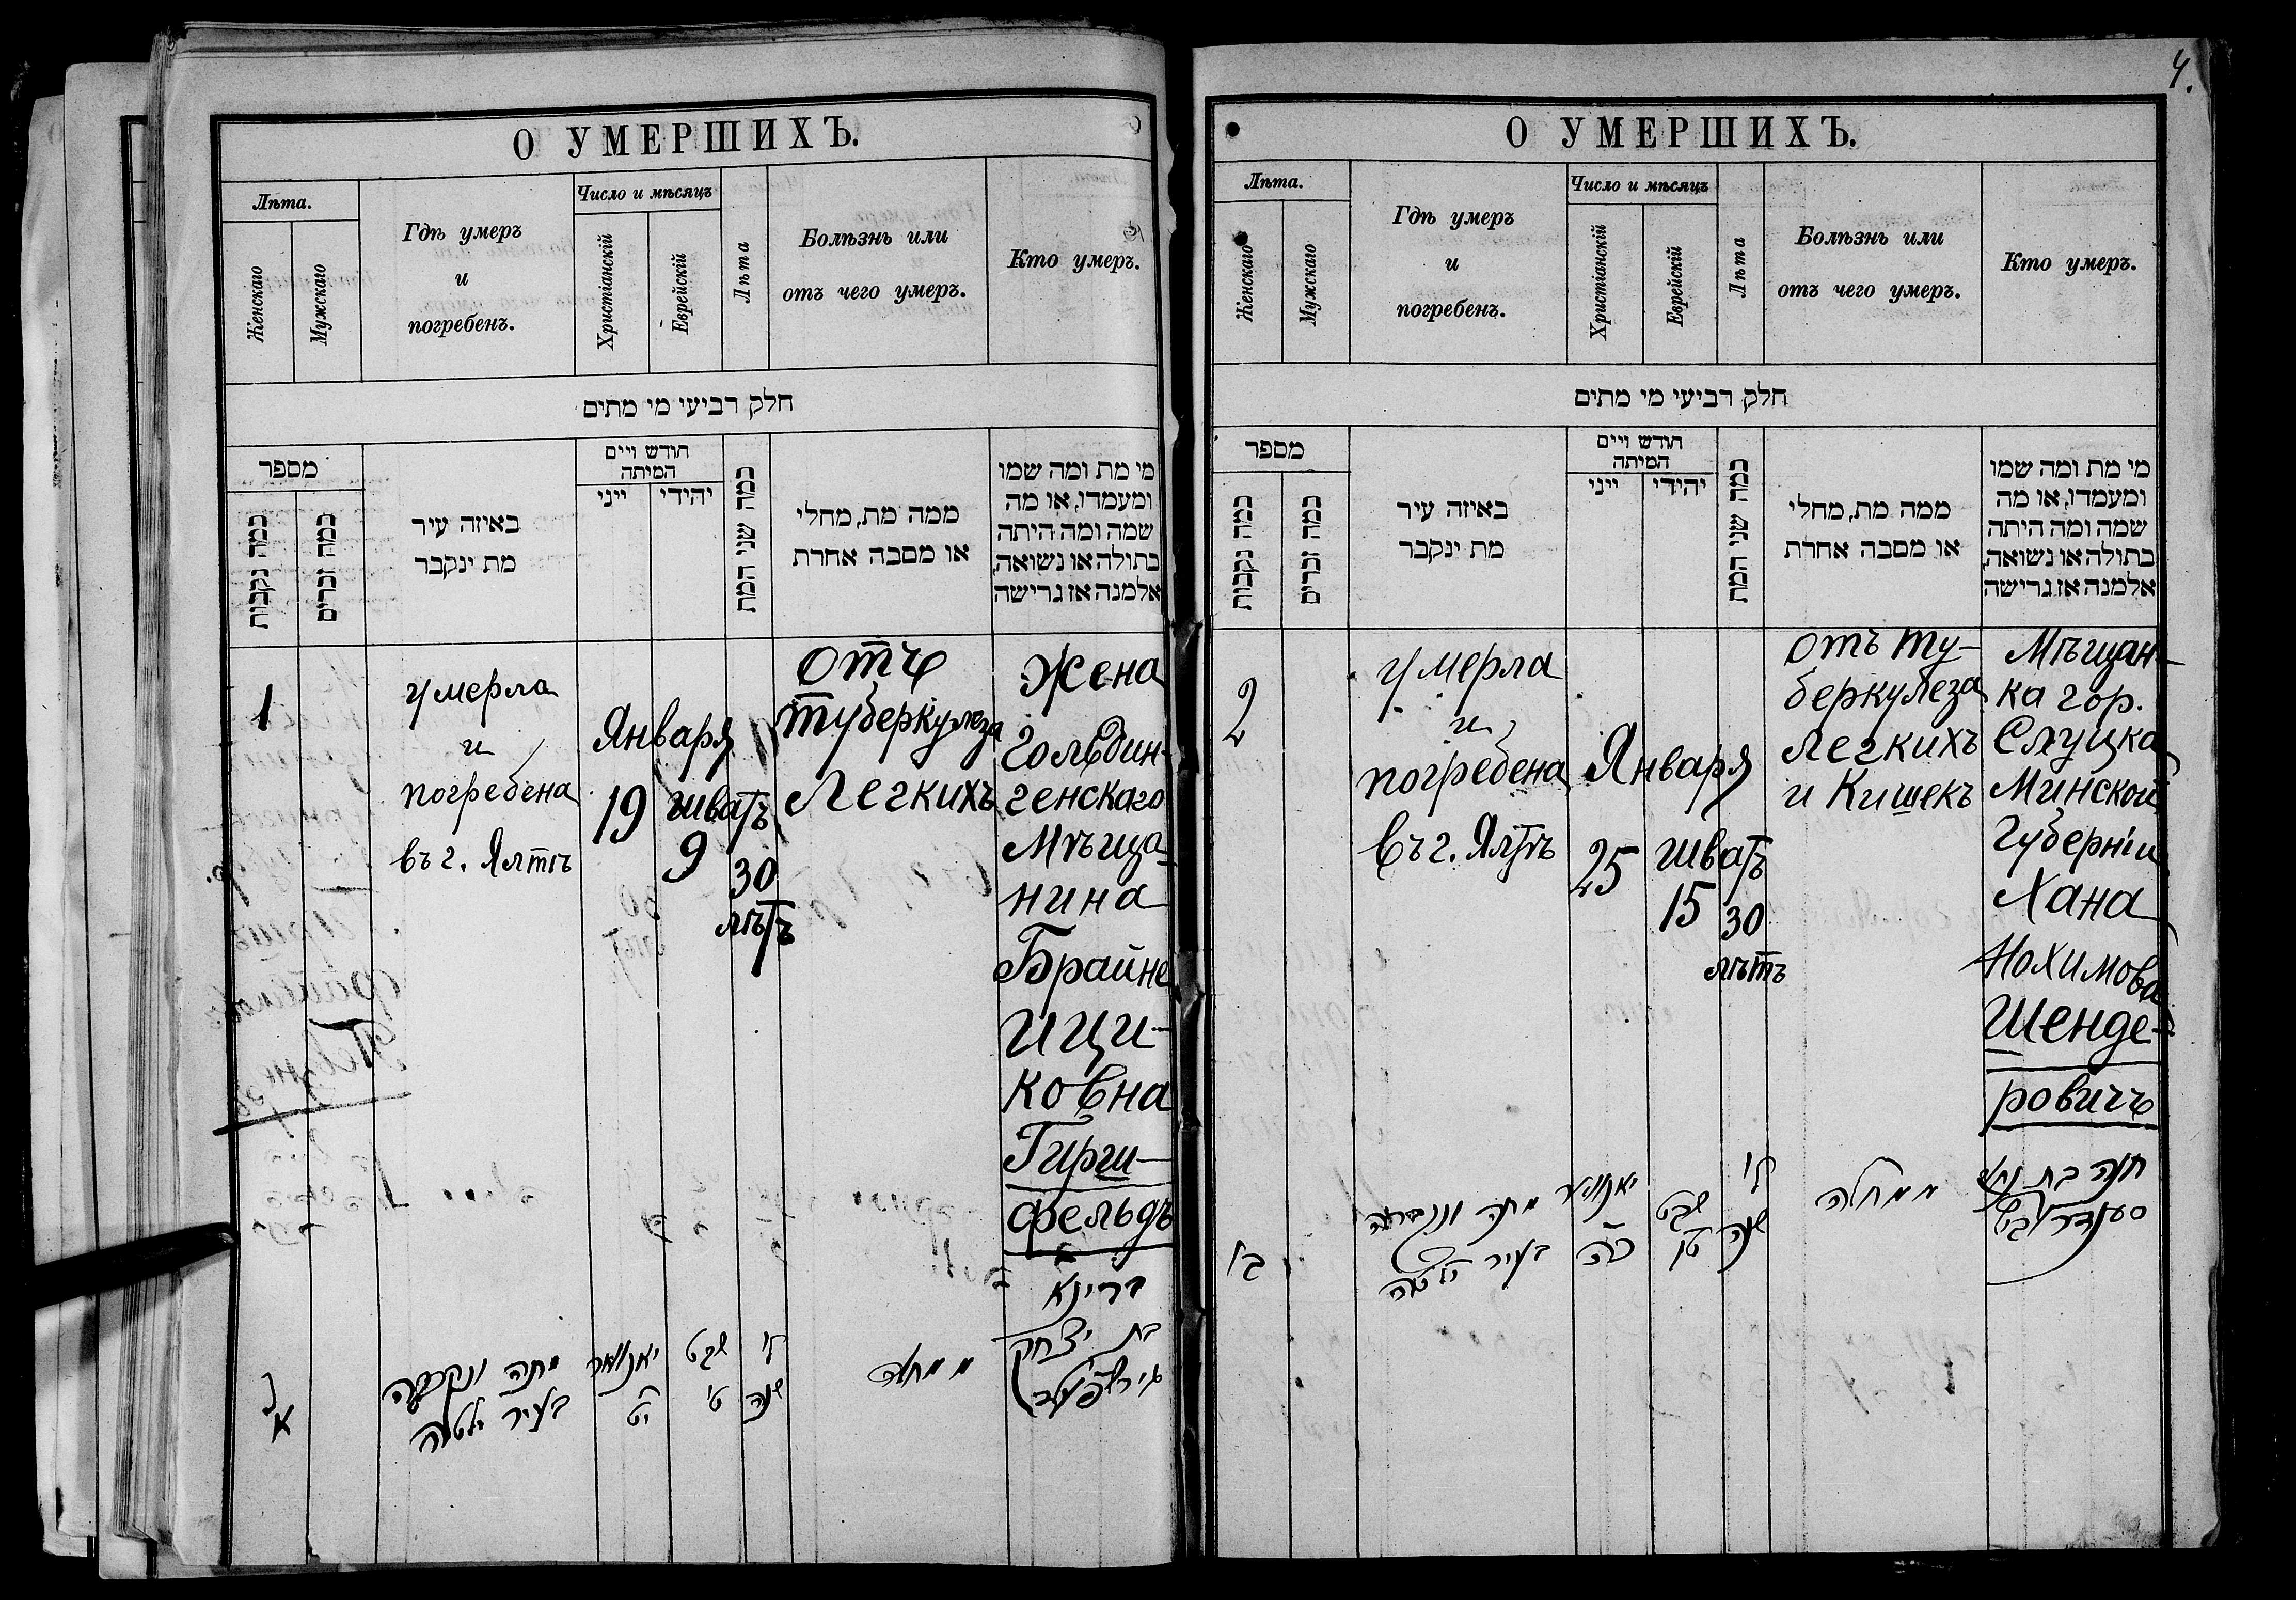 О УМЕРШИХЪ.
Лѣта.
Женскаго
Мужскаго
Гдѣ умеръ
и
погребенъ.
Число и мѣсяцъ
Христіанскій
Еврейскій
Лѣта
Болѣзнь или
отъ чего умеръ.
Кто умеръ.
חלק רביעי מי מתים
מספר
כמה נקבות
כמה זכרים
באיזה עיר
מת ינקבר
חודש ויים
המיתה
ייני
יהידי
כמה שני המת
ממה מת, מחלי
או מסבה אחרת
מי מת ומה שמו
ומעמדו, או מה
שמה ומה היתה
בתולה או נשואה,
אלמנה אז גרישה
1
умерла
и
погребена
въ г. Ялтѣ
Января
19
шватъ
9
30
лѣтъ
отъ
туберкулеза
Легкихъ
Жена
Гольдин-
генскаго
Мѣща-
нина
Брайне
Ици-
ковна
Гирш-
фельдъ
א
מתה ונקברה
בעיר יאלטה
יאנואר
יט
שבט
ט'
ל'
שנה
ממחלה
בריינא
בת יצחק
גירשפעלד
4.
О УМЕРШИХЪ.
Лѣта.
Женскаго
Мужскаго
Гдѣ умеръ
и
погребенъ.
Число и мѣсяцъ
Христіанскій
Еврейскій
Лѣта
Болѣзнь или
отъ чего умеръ.
Кто умеръ.
חלק רביעי מי מתים
מספר
כמה נקבות
כמה זכרים
באיזה עיר
מת ינקבר
חודש ויים
המיתה
ייני
יהידי
כמה שני המת
ממה מת, מחלי
או מסבה אחרת
מי מת ומה שמו
ומעמדו, או מה
שמה ומה היתה
בתולה או נשואה,
אלמנה אז גרישה
2
умерла
и
погребена
въ г. Ялтѣ
Января
25
шватъ
15
30
лѣтъ
отъ ту-
беркулеза
легкихъ
и Кишекъ
Мѣщан-
ка гор.
Слуцка
Минской
Губерніи
Хана
Нохимова
Шенде-
ровичъ
ב'
מתה ונקברה
בעיר יאלטה
יאנואר
כה
שבט
טו
ל'
שנה
ממחלה
חנה בת נחום